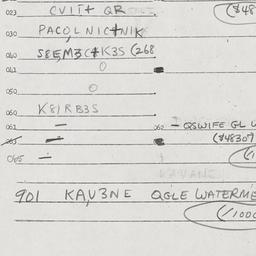 023 CVIT+ QR (748
030 PACOL NIC+NIK
040 SEE,M3C+K3S (268
041 0
050 0
060 K8/RB3S
061 — 062 — QSWIFE GL W
063 — (48307
065 — (1
KAVANE
901 KA,V3NE QGLE WATERME
(/1000